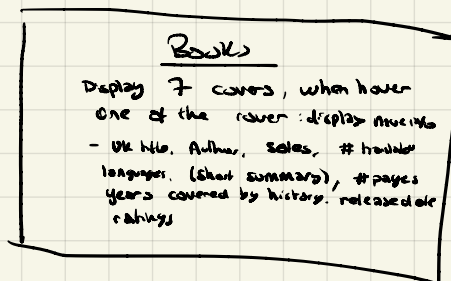 Books
Display 7 covers, when hover
one of the cover : display more info
- UK title, Author, sales, #
languages, (short summary), # pages
years covered by history. release date
ratings